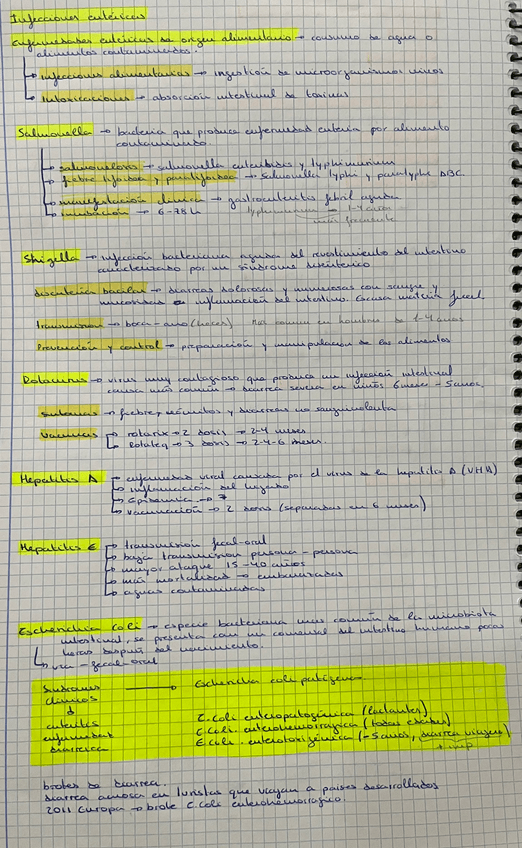 Infecciones entéricas
Enfermedades entéricas de origen alimentario → consumo de agua o
alimentos contaminados.
Infecciones alimentarias → ingestión de microorganismos vivos
Intoxicaciones → absorción intestinal de toxinas
Salmonella → bacteria que produce enfermedad entérica por alimento
contaminado.
salmonelosis → salmonella enteritidis y typhimurium
fiebre tifoidea y paratifoidea → salmonella typhi y paratyphi ABC.
manifestación clínica → gastroenteritis febril aguda
incubación → 6-78 h typhimurium 1-4 años
más frecuente
Shigella → infección bacteriana aguda del revestimiento del intestino
caracterizado por un síndrome disentérico
disentería bacilar → diarreas dolorosas y numerosas con sangre y
mucosidad inflamación del intestino. Escasa materia fecal
transmisión → boca-ano (heces) más común en hombres de 1-4 años
Prevención y control → preparación y manipulación de los alimentos
Rotavirus → virus muy contagioso que produce una infección intestinal
causa más común → diarrea severa en niños 6 meses - 5 años.
síntomas → fiebre, vómitos y diarreas no sanguinolenta
vacunas rotarix → 2 dosis → 2-4 meses
rotateq → 3 dosis → 2-4-6 meses.
Hepatitis A → enfermedad viral causada por el virus de la hepatitis A (VHA)
inflamación del hígado
epidemia → 7
vacunación → 2 dosis (separadas en 6 meses)
Hepatitis E → transmisión fecal-oral
baja transmisión persona-persona
mayor ataque 15-40 años
más mortalidad → embarazadas
aguas contaminadas
Escherichia coli → especie bacteriana más común de la microbiota
intestinal, se presenta com un comensal del intestino humano pocas
horas después del nacimiento.
vía-fecal-oral
síndromes → Escherichia coli patógena.
clínicos
enteritis E.coli enteropatogénica (lactantes)
enfermedad E.coli enterohemorrágica (todas edades)
diarreica E.coli enterotoxigénica (-5 años, diarrea viajero)
+ imp
brotes de diarrea.
diarrea acuosa en turistas que viajan a países desarrollados
2011 Europa → brote E.coli enterohemorrágico.